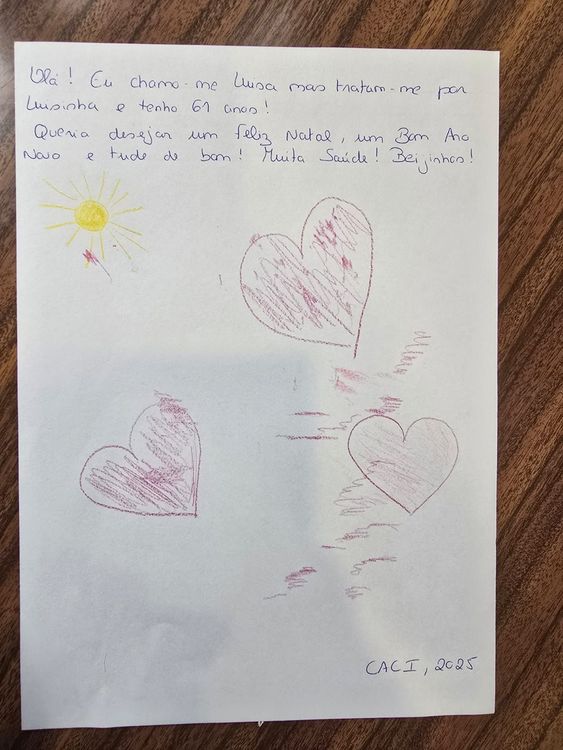 Olá! Eu chamo-me Luisa mas tratam-me por
Luisinha e tenho 61 anos!
Queria desejar um feliz Natal, um Bom Ano
Novo e tude de bom! Muita Saúde! Beijinhos!
CACI, 2025